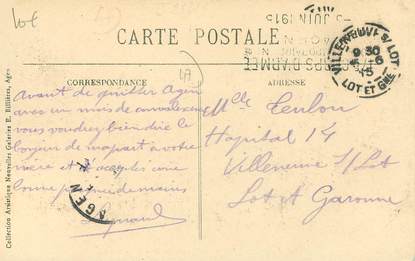 Lot
5 JUIN 1915
CARTE POSTALE
VILLENEUVE S/ LOT
9 30
5 - 6
15
LOT ET GNE
CORRESPONDANCE
ADRESSE
Avant de quitter Agen
avec un mois de convalescence
vous voudrez bien dire le
bonjour de ma part à votre
mère et acceptez une
bonne poignée de mains
AGEN
Mlle
Hopital 14
Villeneuve S/Lot
Lot et Garonne
Collection Artistique Nouvelles Galeries E. Billières, Agen